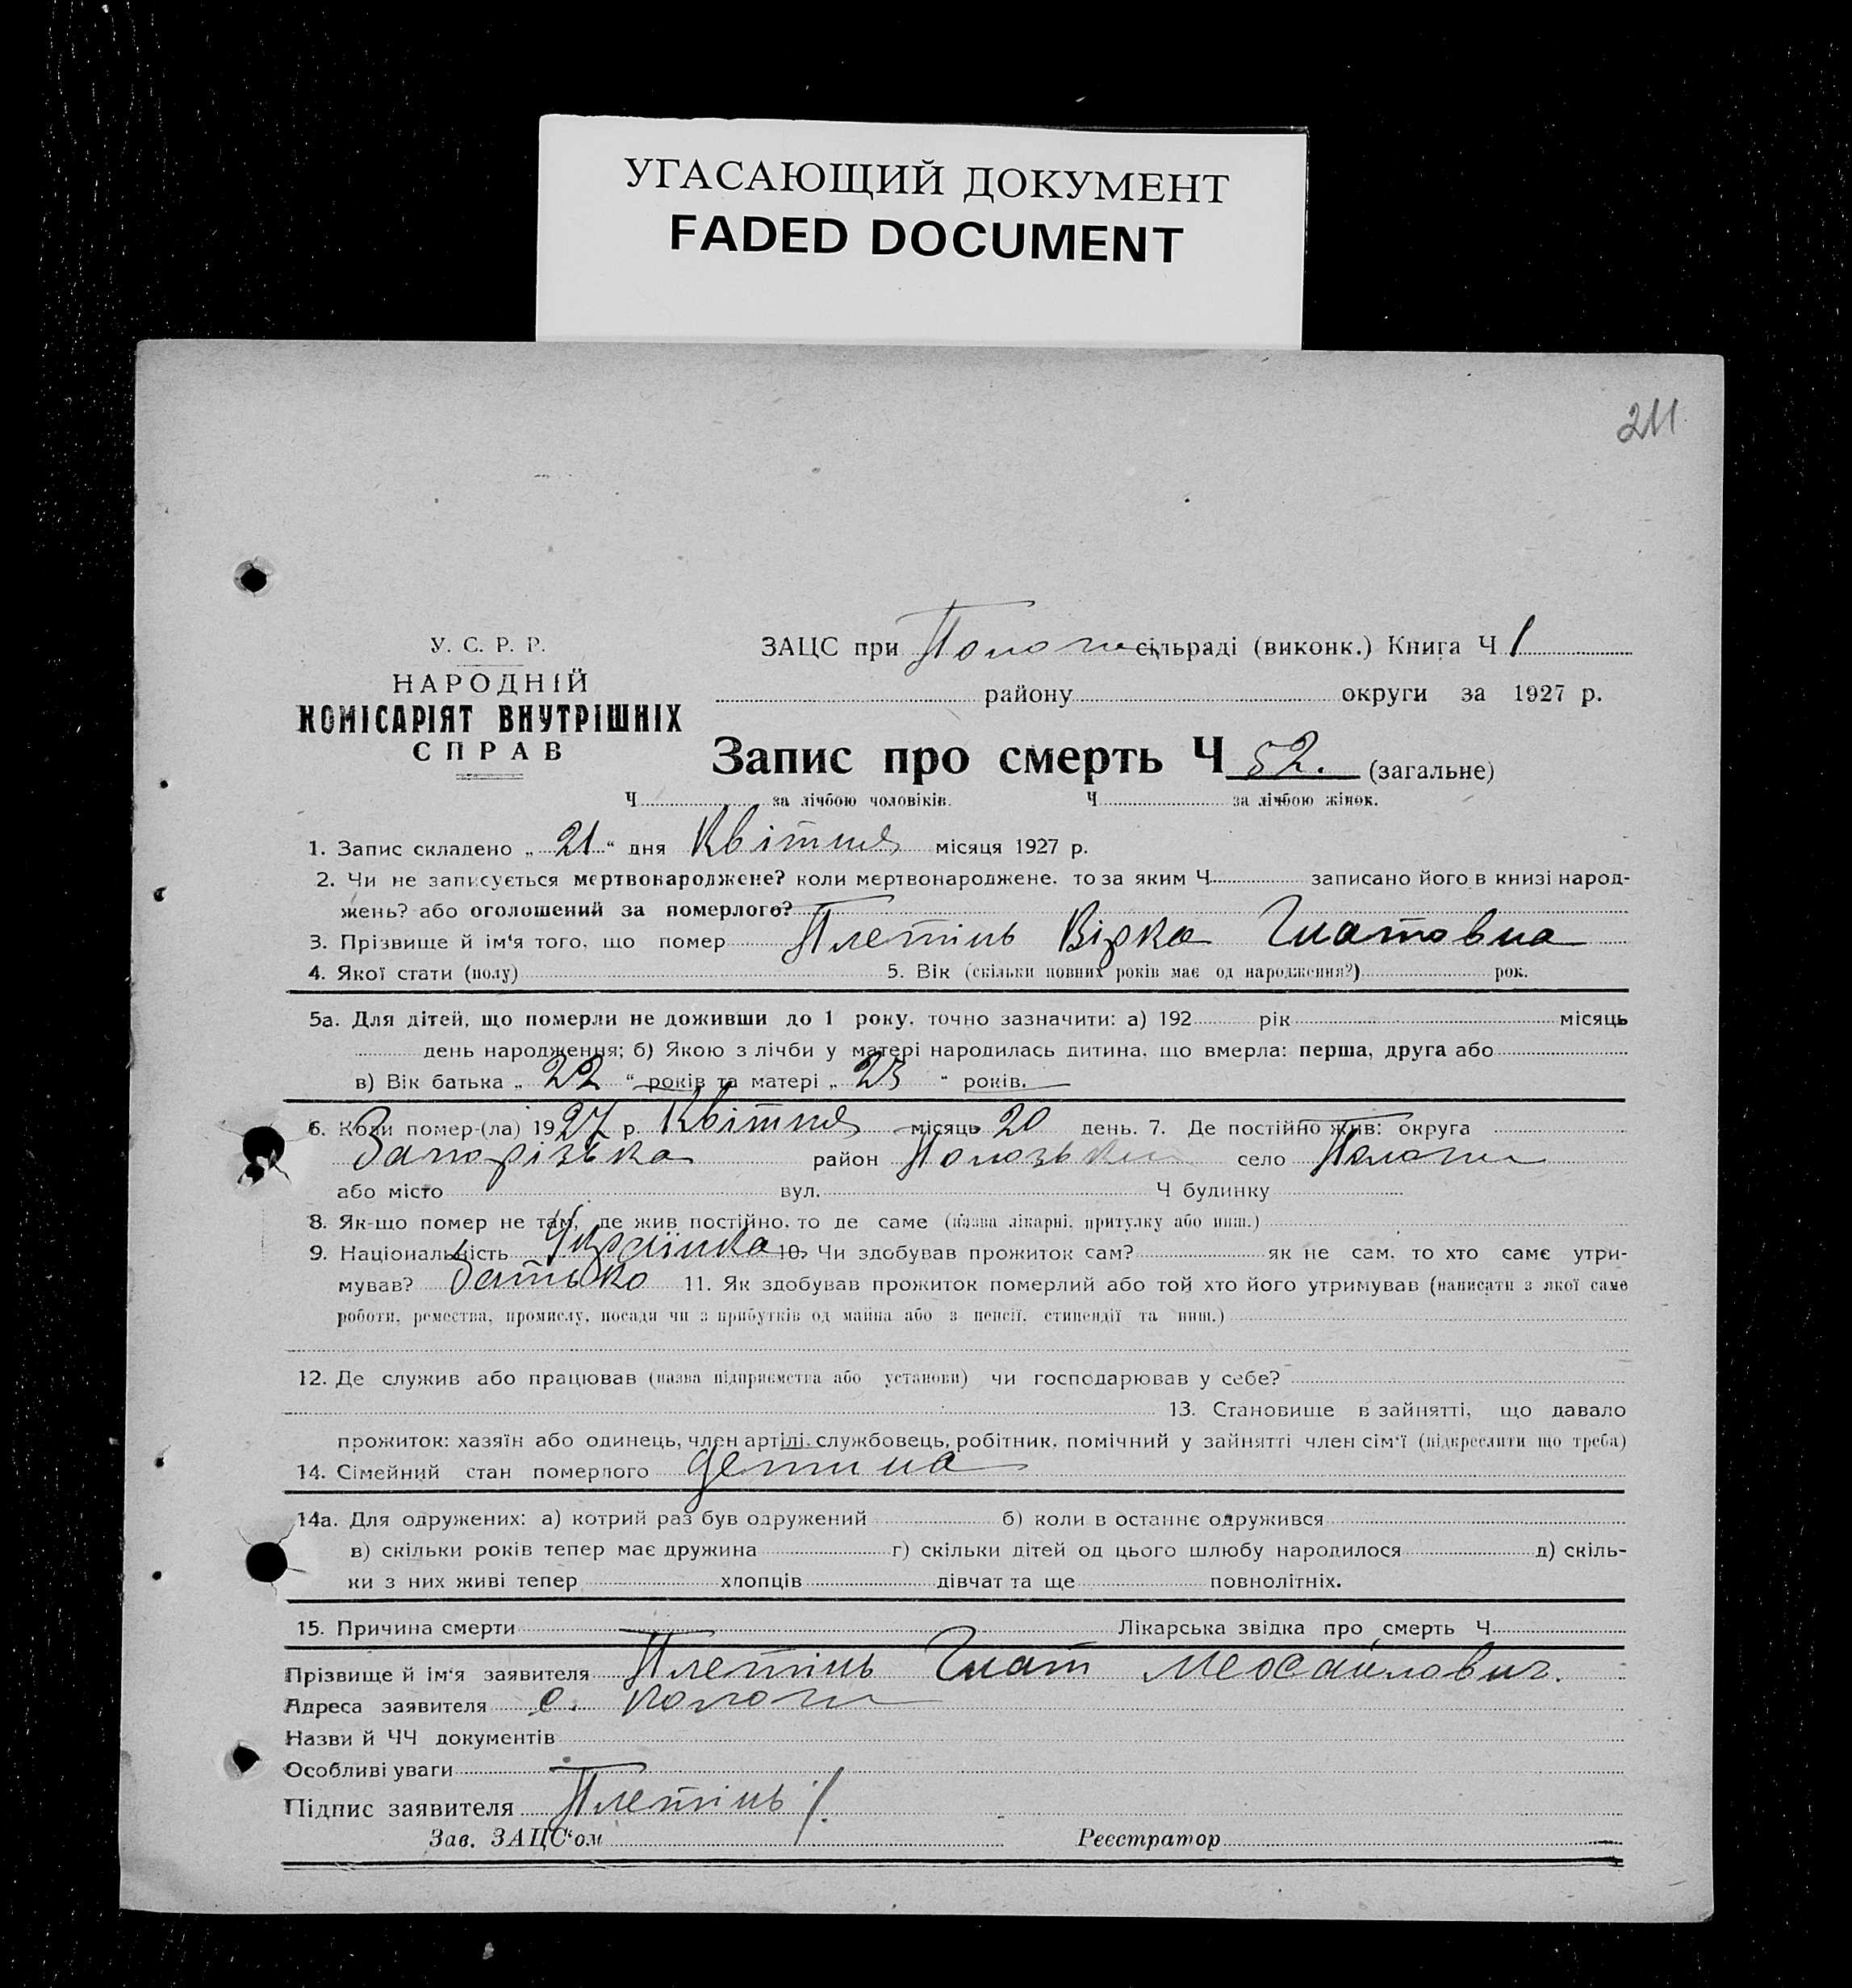 УГАСАЮЩИЙ ДОКУМЕНТ
FADED DOCUMENT
211
У. С. Р. Р.
НАРОДНІЙ
КОМІСАРІЯТ ВНУТРІШНІХ
СПРАВ
ЗАЦС при сільраді (виконк.) Книга Ч 1
району округи за 1927 р.
Запис про смерть Ч 52. (загальне)
Ч за лічбою чоловіків. Ч за лічбою жінок.
1. Запис складено „ 21 “ дня Квітня місяця 1927 р.
2. Чи не записується мертвонароджене? коли мертвонароджене, то за яким Ч записано його в книзі народ-
жень? або оголошений за померлого?
3. Прізвище й ім‘я того, що помер Плетінь Вірка Гнатовна
4. Якої стати (полу) 5. Вік (скільки повних років має од народження?) рок.
5а. Для дітей, що померли не доживши до 1 року, точно зазначити: а) 192 рік місяць
день народження; б) Якою з лічби у матері народилась дитина, що вмерла: перша, друга або
в) Вік батька „ 22 “ років та матері „ 23 “ років.
6. Коли помер-(ла) 1927 р. Квітня місяць 20 день. 7. Де постійно жив: округа
Запорізька район Пологзький село Пологи
або місто вул. Ч будинку
8. Як-що помер не там, де жив постійно, то де саме (назва лікарні, притулку або инш.)
9. Національність Українка 10. Чи здобував прожиток сам? як не сам, то хто саме утри-
мував? батько 11. Як здобував прожиток померлий або той хто його утримував (написати з якої саме
роботи, ремества, промислу, посади чи з прибутків од майна або з пенсії, стипендії та инш.)
12. Де служив або працював (назва підприємства або установи) чи господарював у себе?
13. Становище в зайнятті, що давало
прожиток: хазяїн або одинець, член артілі, службовець, робітник, помічний у зайнятті член сім‘ї (підкреслити що треба)
14. Сімейний стан померлого детина
14а. Для одружених: а) котрий раз був одружений б) коли в останнє одружився
в) скільки років тепер має дружина г) скільки дітей од цього шлюбу народилося д) скіль-
ки з них живі тепер хлопців дівчат та ще повнолітніх.
15. Причина смерти Лікарська звідка про смерть Ч
Прізвище й ім‘я заявителя Плетінь Гнат Механлович.
Адреса заявителя с. Пологи
Назви й ЧЧ документів
Особливі уваги
Підпис заявителя Плетінь
Зав. ЗАЦС‘ом Реєстратор